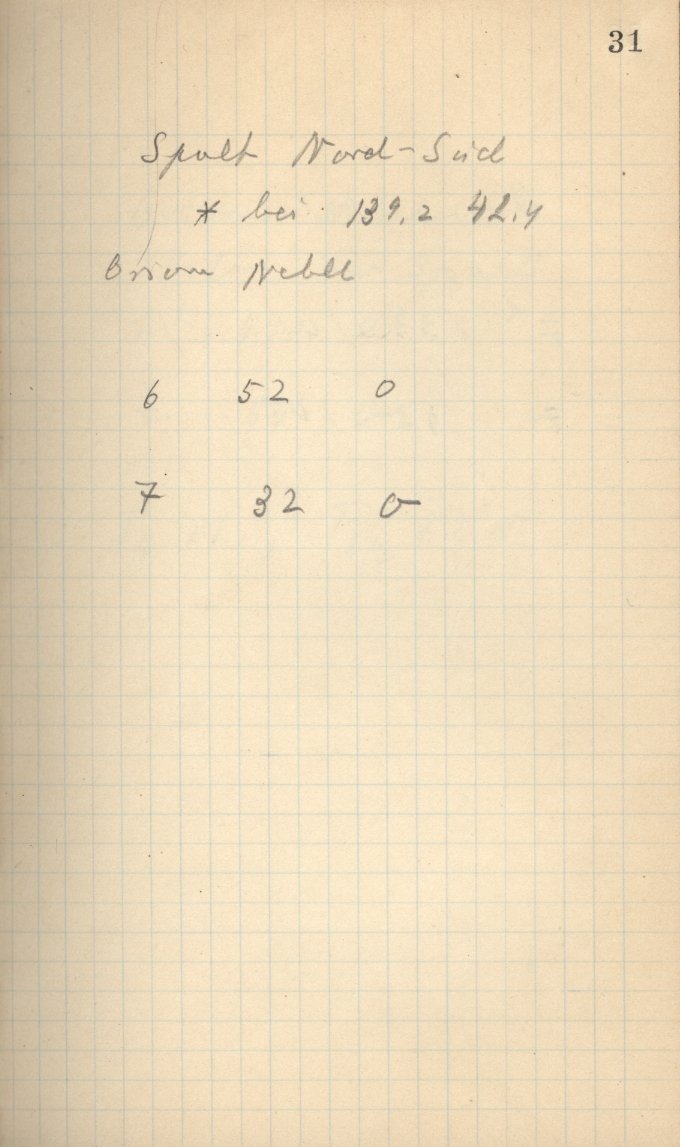 31
Spalt Nord-Süd
* bei 139.2 42.4
Orion Nebel
6 52 0
7 32 0